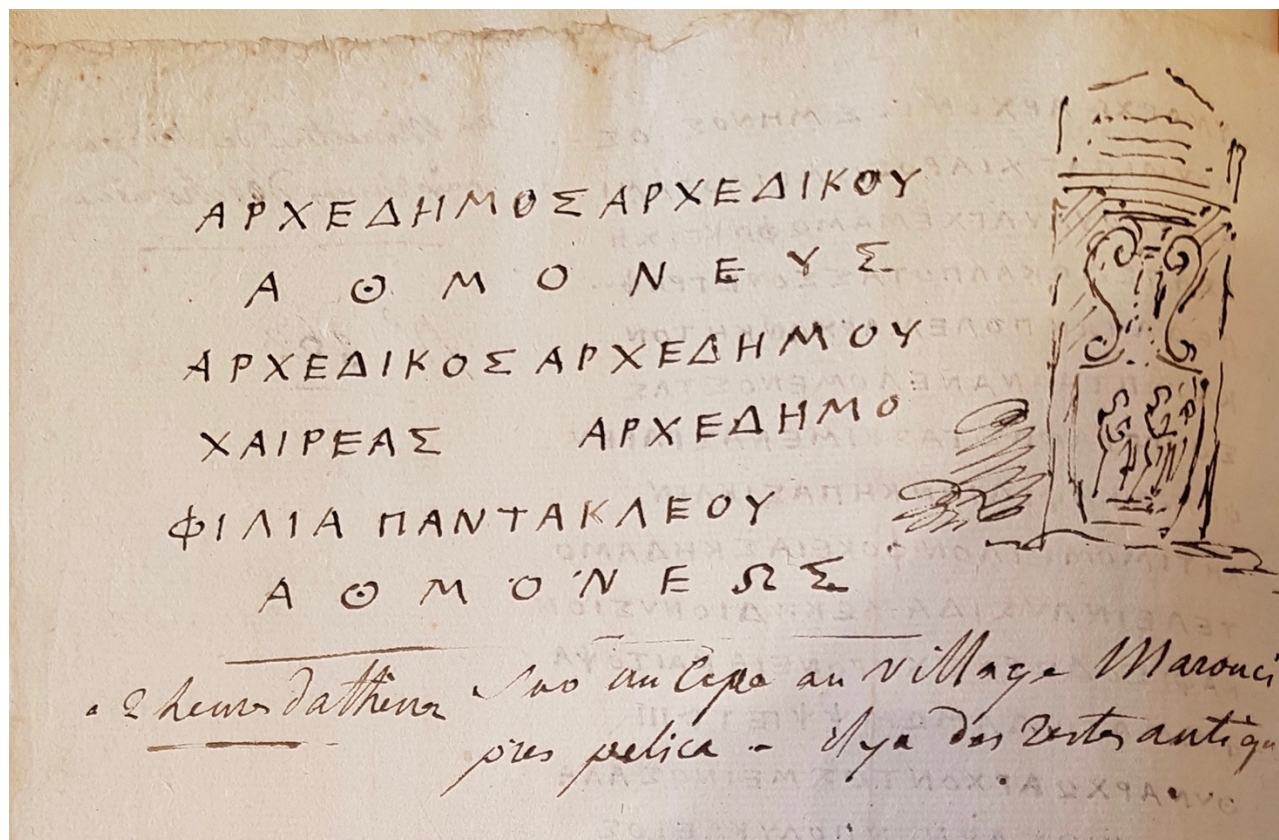 ΑΡΧΕΔΗΜΟΣ ΑΡΧΕΔΙΚΟΥ
ΑΘΜΟΝΕΥΣ
ΑΡΧΕΔΙΚΟΣ ΑΡΧΕΔΗΜΟΥ
ΧΑΙΡΕΑΣ ΑΡΧΕΔΗΜΟ
ΦΙΛΙΑ ΠΑΝΤΑΚΛΕΟΥ
ΑΘΜΟΝΕΩΣ
a 2 heures d'athenes Sur un Cipe au village Marouci
pres pelica - il y a des restes antiqu